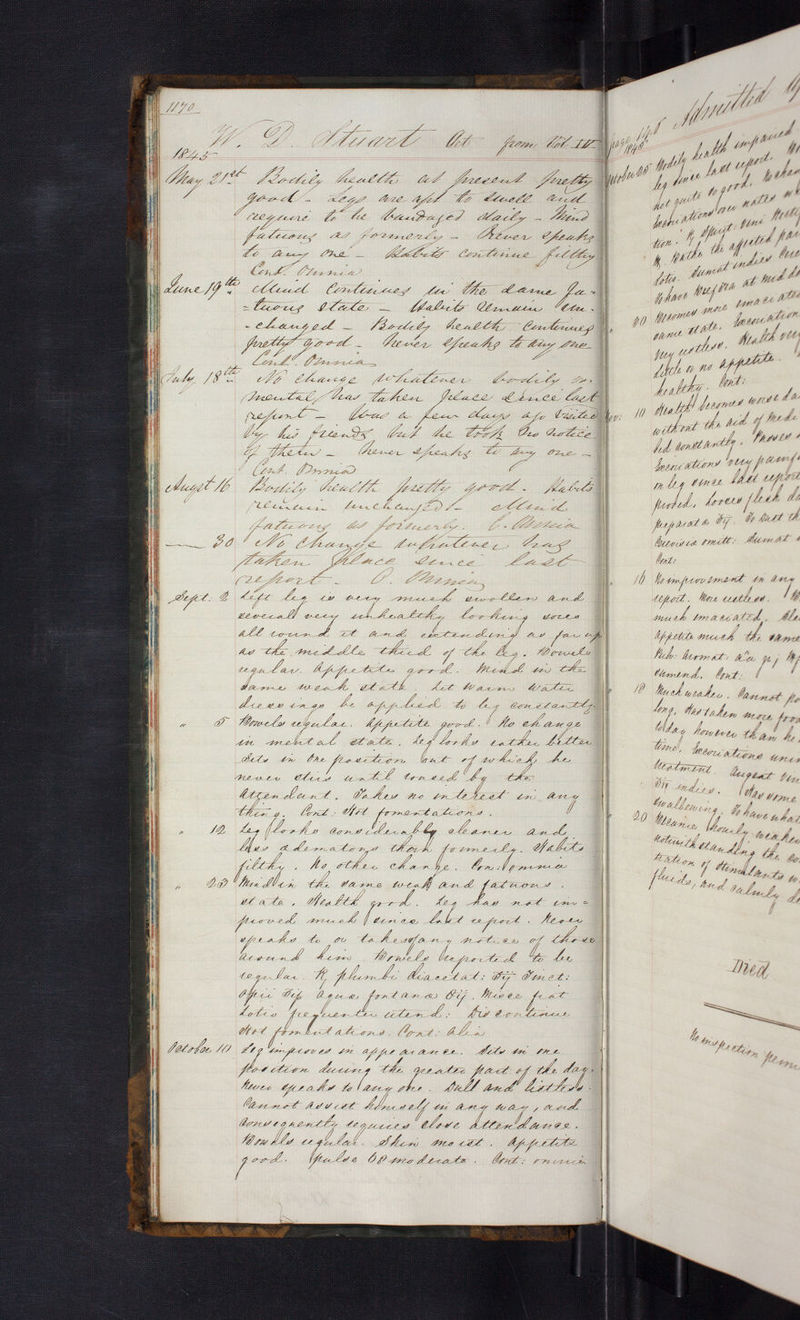 1170
W. D. Stuart Act from Vol. IV
1845
May 21st Bodily health at present pretty
good - Legs are apt to swell and
require to be bandaged daily - Mind
fatuous as formerly - Never speaks
to any one - Habits continue filthy
Cont. Omnia
June 19th Mind continues in the same fa-
=tuous state - Habits remain un-
-changed - Bodily health continues
pretty good - never speaks to any one
Cont. Omnia
July 18th No change whatever bodily or
mental has taken place since last
report - Was a few days ago visited
by his friends but he took no notice
of them - never speaks to any one -
Cont. Omnia
Augst 16 Bodily health pretty good. Habits
remain unchanged - Mind
fatuous as formerly. C. Omnia
— 30 No change whatever has
taken place since last
report - C. Omnia
Sept. 2 Left leg is very much swollen and
several very unhealthy looking sores
all round it and extending as far up
as the middle third of the leg. Bowels
regular. Appetite good. Mind in the
same weak state. Let warm water
dressings be applied to leg constantly
" 5 Bowels regular. Appetite good. No change
in mental state. Leg looks rather better
Sits in one position out of which he
never stirs until roused by the
Attendant. Takes no interest in any
thing. Cont. Hot fomentations.
" 12 Leg looks considerably cleaner and
less œdematous than formerly. Habits
filthy. No other change. Con. omnia
" 23 Mind in the same weak and fatuous
state. Health good. Leg has not im=
proved much since last report. Never
speaks to or takes any notice of those
around him. Bowels reported to be
regular. ℞ plumbi diacetat: ʒij Tinct:
opii ʒij Aquæ fontanæ Oij. Misce fiat
Lotio frequenter utend: Discontinue
Hot fomentations. Cont: alia
October 10 Leg improves in appearance. Sits in one
position during the greater part of the day.
Never speaks to any one. Dull and listless.
Cannot assist himself in any way, and
consequently requires close attendance.
Bowels regular. Skin moist. Appetite
good. Pulse 68 moderate. Cont: omnia
page 148 Admitted
1845
October 25 Bodily health impaired
leg since last report.
not quite so good. Takes
Excoriations over nates
℞ Spirit: vini
Bathe the affected
lotio. Sumat indies
To have beef tea at mid
30 Becomes more emaciated
same state. Excoriation
very restless. Health very
little or no appetite.
healthy. Cont:
Nov: 10 Health becomes worse
without the aid of
bed constantly. Passes
Excoriations very painful
on leg since last report
proved. Loses flesh
To rest
omitt: Sumat
Cont:
" 16 No improvement in any
report. More restless.
much emaciated.
Appetite much the same
aromat.
sumend. Cont:
" 18 Much weaker. Cannot
long. Has taken more food
today however than he
time. Excoriations
treatment. Augeat
indies. Has some
swallowing. To have what
" 20 Became hourly weaker
notwithstanding the
tration of stimulants
fluids, and calmly
Died
No inspection